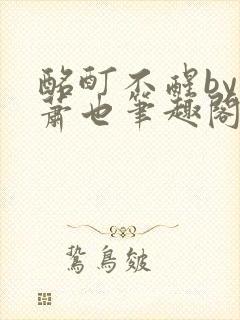 酩酊不醒by
萧也笔趣阁
鸷鸟皴